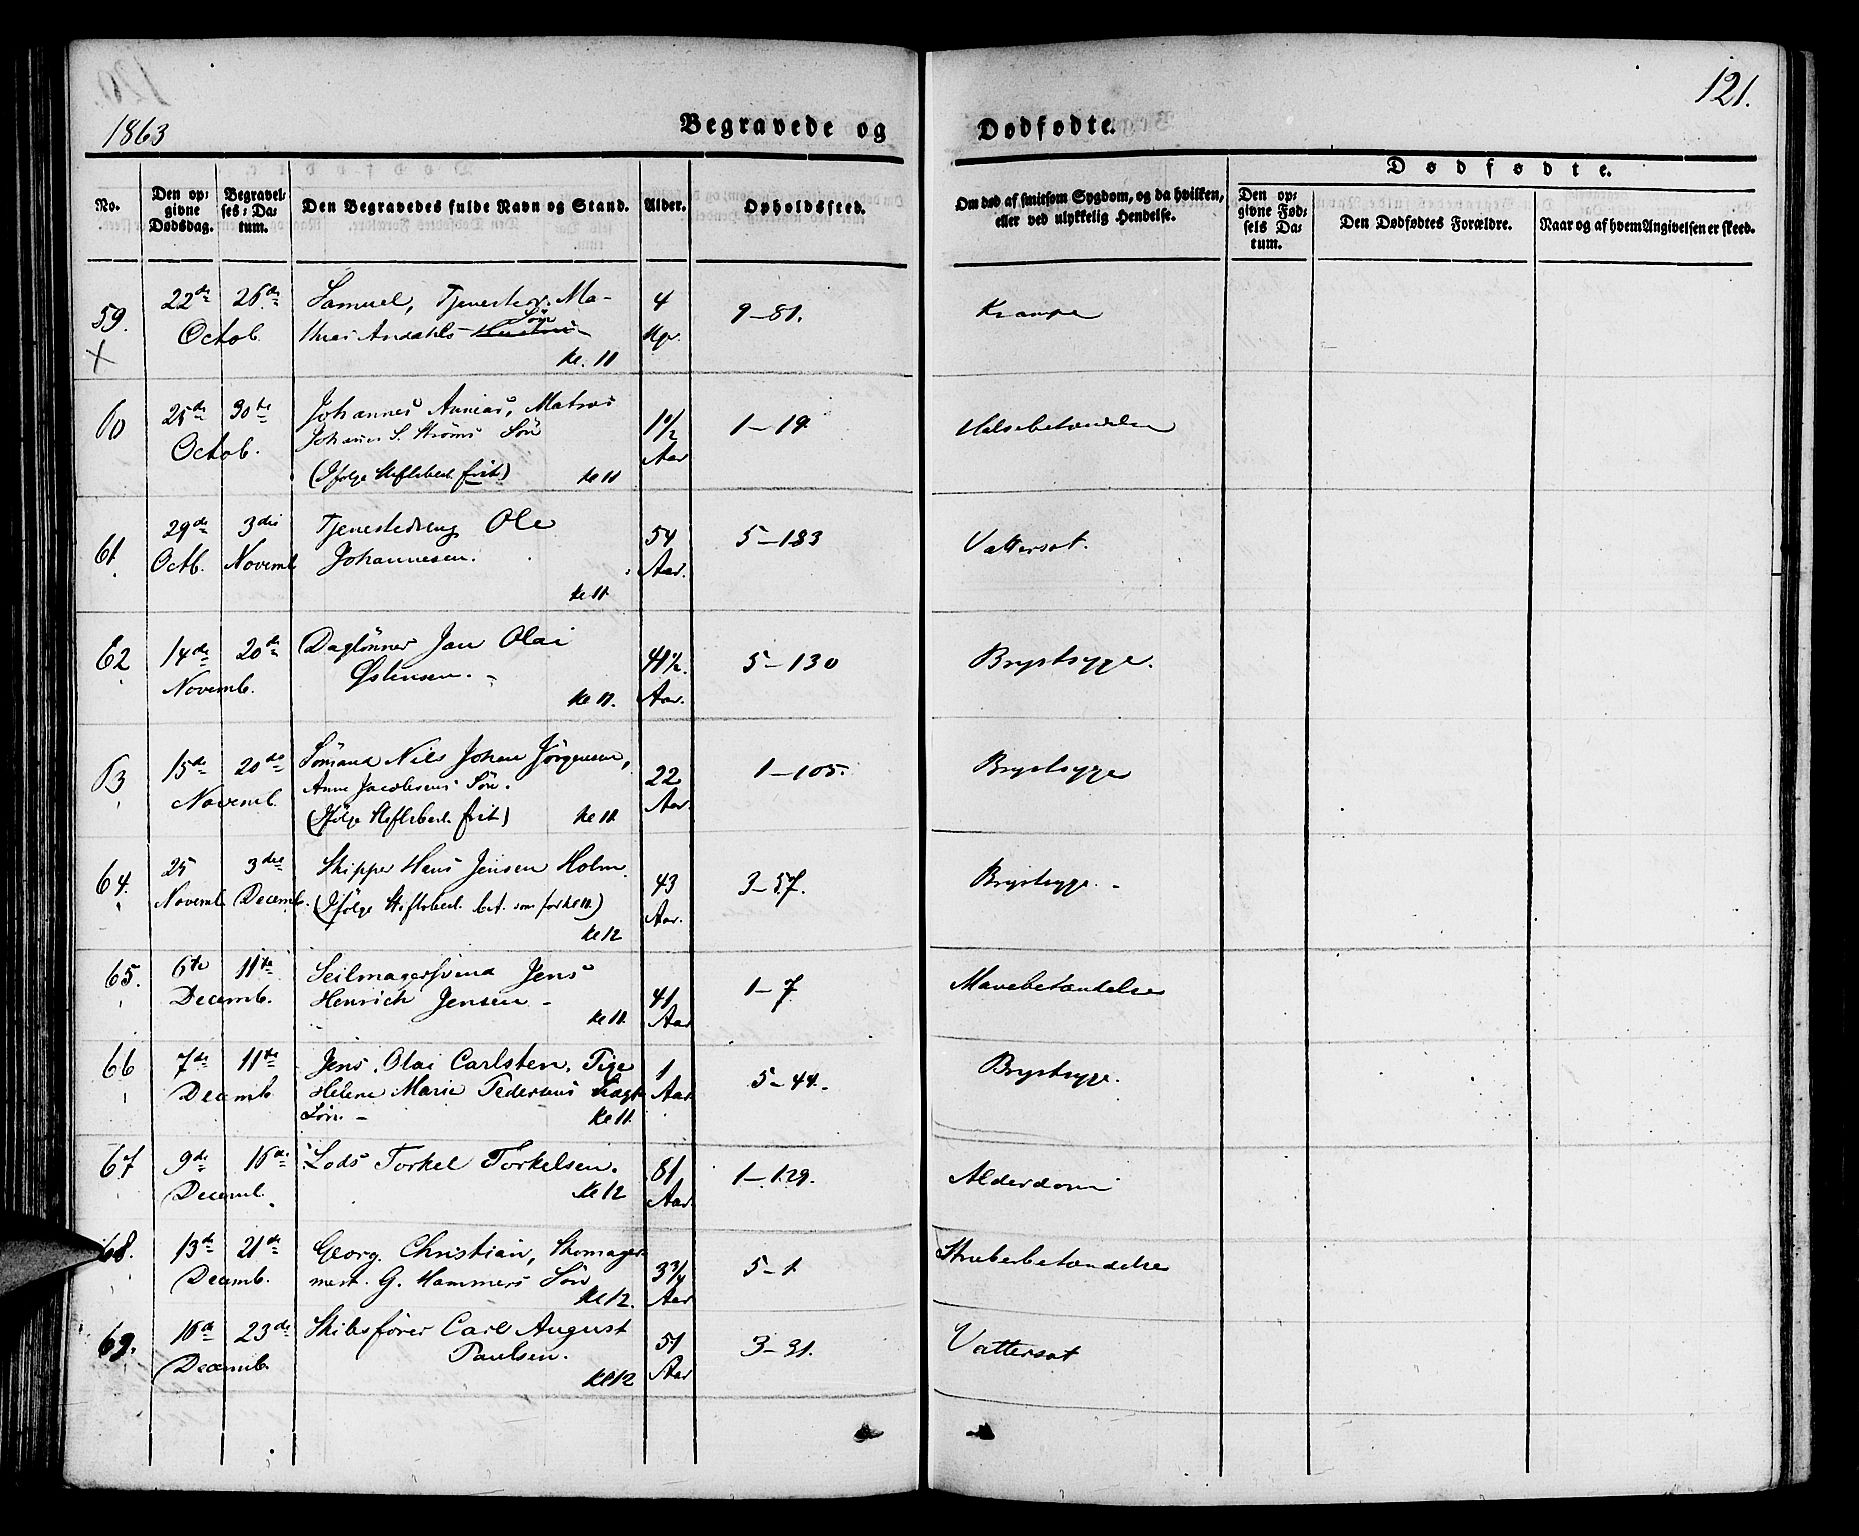 121.
1863
Begravede og Dødfødte.
No.
Den opgivne Dødsdag.
Begravelses-Datum.
Den Begravedes fulde Navn og Stand.
Alder.
Opholdssted.
Om død af smitsom Sygdom, og da hvilken, eller ved ulykkelig Hendelse.
Dødfødte.
Den opgivne Fødsels Datum.
Den Dødfødtes Forældre.
Naar og af hvem Angivelsen er skeed.
59. 22de 26de Samuel, Tjenestkar. Ma- 4 9-81. Krampe
Octob. thias Andahls Søn
Ke. 11
60 25de 30te Johannes Annias, Matros 1 1/2 1-19. Halsebetændelse
Octob. Johannes S. Strøms Søn Aar
(Ifølge Skiftsbest. frit) Ke 11
61. 29de 3die Tjenestedreng Ole 54 5-183 Vattersot.
Octb. Novemb Johannesen. Aar.
Ke 11.
62 14de 20de Daglönner Jan Olai 41 1/2. 5-130 Brystsyge.
Novemb. Østensen. Aar.
Ke 11.
63 15de 20de Sömand Nils Johan Jörgensen, 22 1-105. Brystsyge
Novemb. Anne Jacobsens Sön. Aar.
(Ifölge Skiftsbest. frit) Ke 11.
64. 25 3die Skipper Hans Jensen Holm. 43 3-57. Brystsyge.
Novemb. Decemb. (Ifölge Skiftsbest. bet. som for Ke 11.) Aar.
Ke 12
65. 6te 11te Seilmagersvend Jens 41 1-7 Mavebetændelse
Decemb. Henrich Jensen Aar
Ke 11.
66 7de 11te Jens Olai Carlsten, Pige 1 5-44. Brystsyge.
Decemb. Helene Marie Pedersens Aar
Sön Ke 11.
67 9de 16de Lods Torkel Torkelsen. 81 1-129. Alderdom
Decemb. Ke 12 Aar.
68. 13de 21de Georg Christian, Skomager- 3 3/4 5-1. Strubebetændelse
Decemb. mest. G. Hammers Sön Aar
Ke 12.
69. 16de 23de Skibsfører Carl August 51 3-31. Vattersot
Decemb. Paulsen. Aar
Ke 12